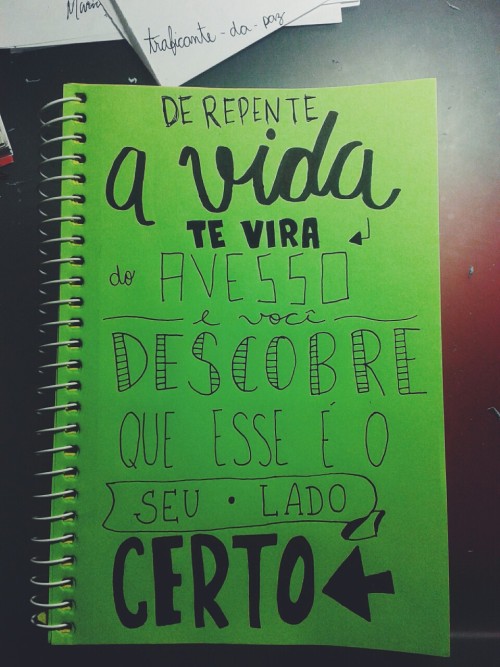 Maria
traficante-da-paz
DE REPENTE
a vida
TE VIRA
do AVESSO
e você
DESCOBRE
QUE ESSE É O
SEU • LADO
CERTO